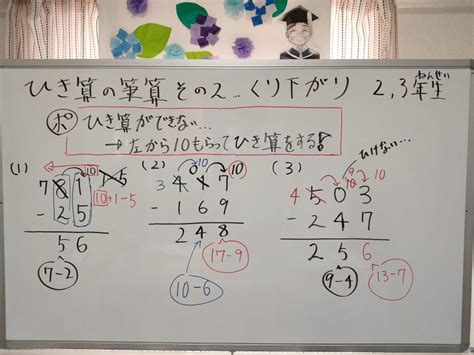 ひき算の筆算 その2…くり下がり 2,3年生
ねんせい
ポ ひき算ができない…
→左から10もらってひき算をする!
(1)
10
7 8 1 1-5
- 2 5
10+1-5
5 6
7-2
(2)
0 10 10
3 4 1 7
- 1 6 9
2 4 8
17-9
10-6
(3)
ひけない…
9 10 10
4 5 0 3
- 2 4 7
2 5 6
9-4
13-7